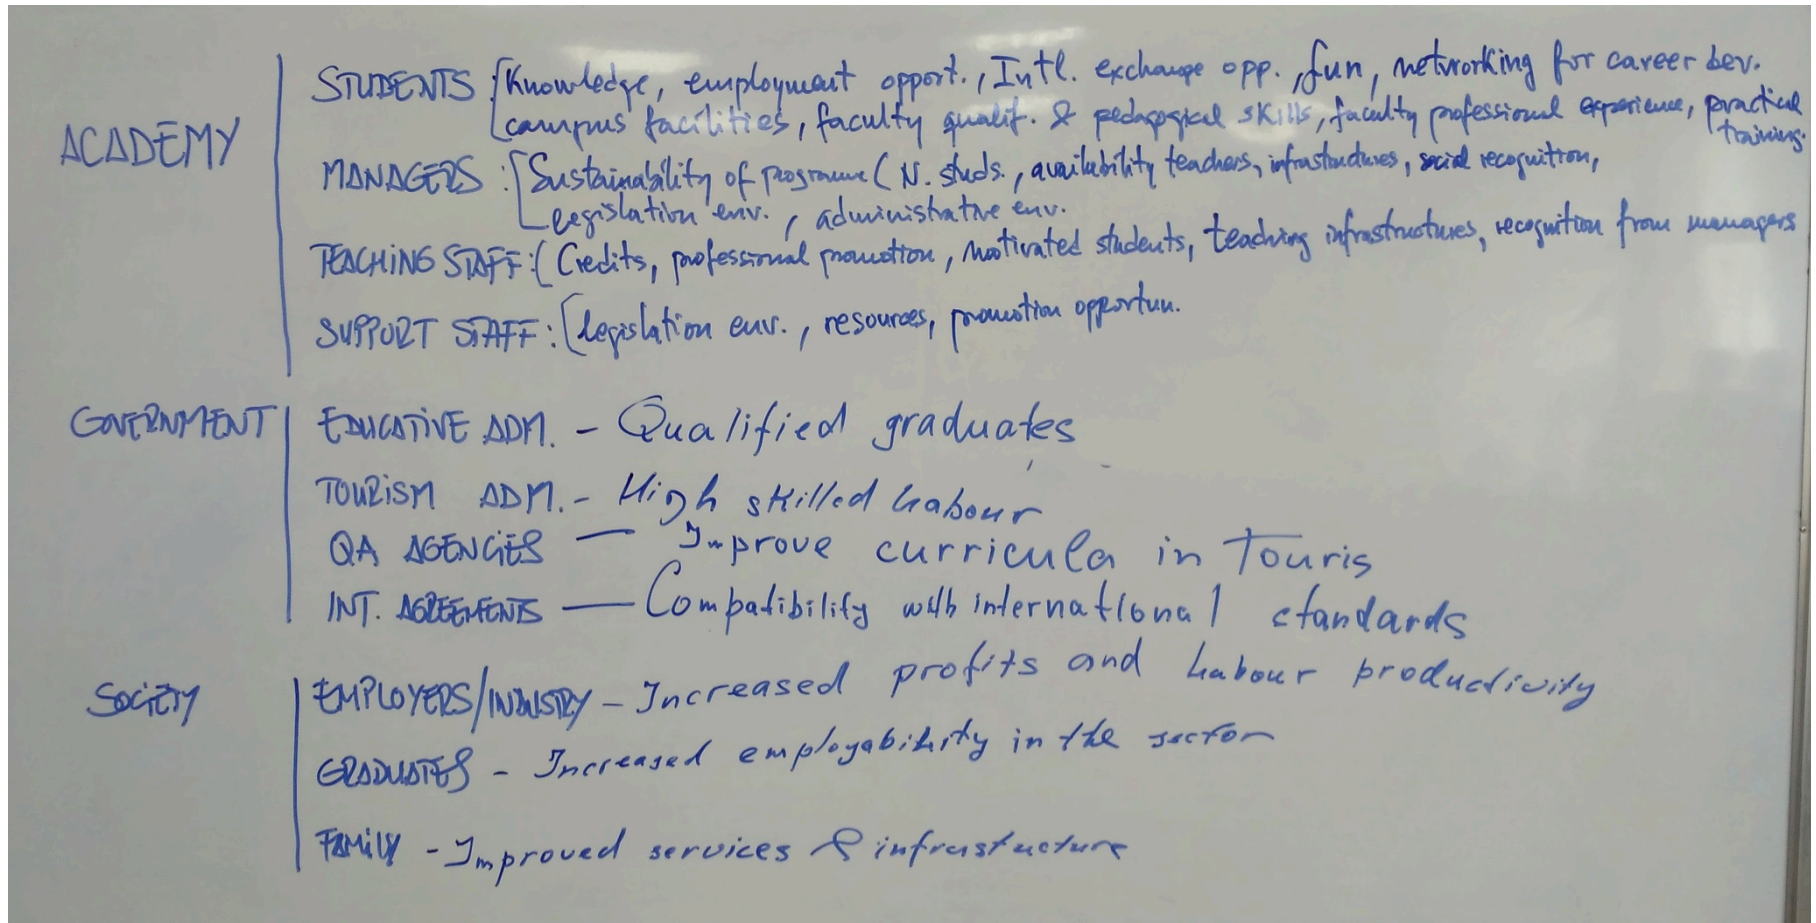 ACADEMY
STUDENTS [Knowledge, employment opport., Intl. exchange opp., fun, networking for career dev.
campus facilities, faculty qualif. & pedagogical skills, faculty professional experience, practical
training.
MANAGERS: [Sustainability of programme (N. studs., availability teachers, infrastructures, social recognition,
legislation env., administrative env.
TEACHING STAFF: ( Credits, professional promotion, motivated students, teaching infrastructures, recognition from managers
SUPPORT STAFF: [legislation env., resources, promotion opportun.
GOVERNMENT
EDUCATIVE ADM. - Qualified graduates
TOURISM ADM. - High skilled labour
QA AGENCIES — Improve curricula in Touris
INT. AGREEMENTS — Compatibility with international standards
SOCIETY
EMPLOYERS/INDUSTRY - Increased profits and labour productivity
GRADUATES - Increased employability in the sector
FAMILY - Improved services & infrastucture